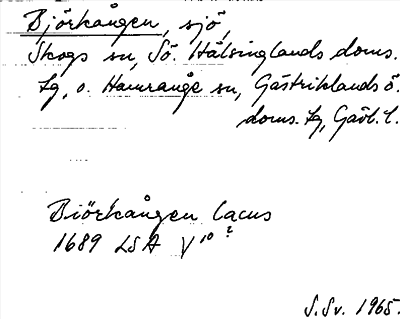 Björkången, sjö,
Skogs sn, Sö. Hälsinglands doms.
tg, o. Hamrånge sn, Gästriklands ö.
doms. tg, Gävl. l.
Biörkången Lacus
1689 LSA V 10 2
S.Sv. 1965.